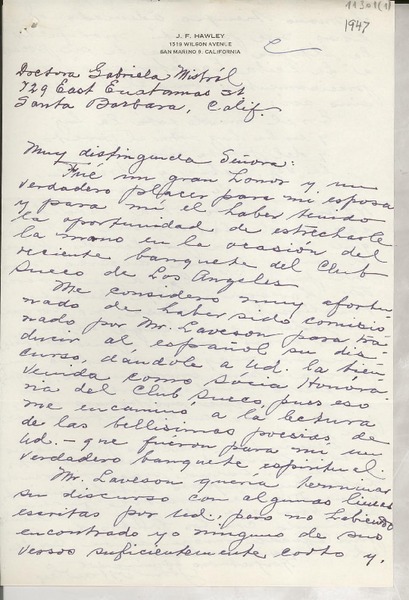 11301(1)
1947
J. F. HAWLEY
1519 WILSON AVENUE
SAN MARINO 9, CALIFORNIA
Doctora Gabriela Mistral
729 East Anapamas St
Santa Barbara, Calif.
Muy distinguida Señora:
Fué un gran honor y un
verdadero placer para mi esposa
y para mí el haber tenido
la oportunidad de estrecharle
la mano en la ocasión del
reciente banquete del Club
Sueco de Los Angeles
Me considero muy afortu-
nado de haber sido comisio-
nado por Mr. Laveson para tra-
ducir al español su dis-
curso, dándole a Ud. la bien-
venida como Socia Honora-
ria del Club Sueco, pues eso
me encaminó a la lectura
de las bellísimas poesías de
Ud. — que fueron para mi un
verdadero banquete espiritual.
Mr. Laveson quería terminar
su discurso con algunas líneas
escritas por Ud., pero no habiendo
encontrado yo ninguno de sus
versos suficientemente corto y,